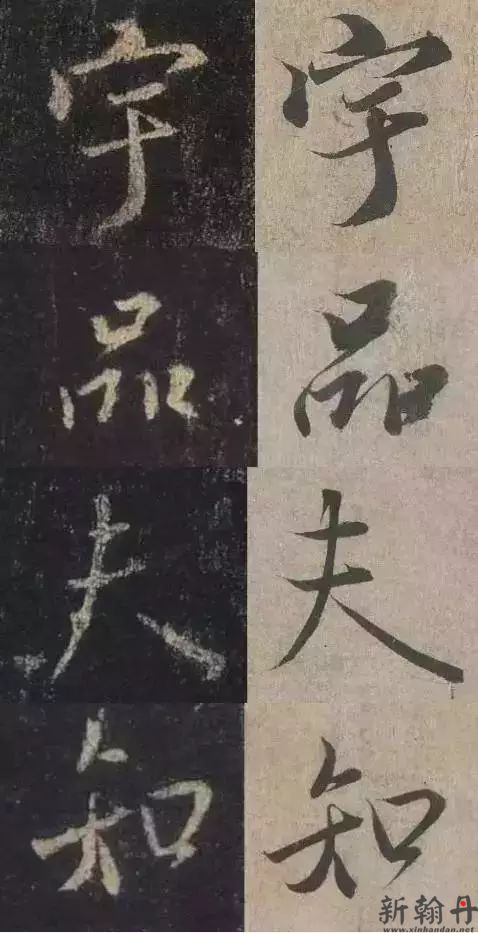 宇 宇
品 品
夫 夫
知 知
新翰丹
www.xinhandan.net